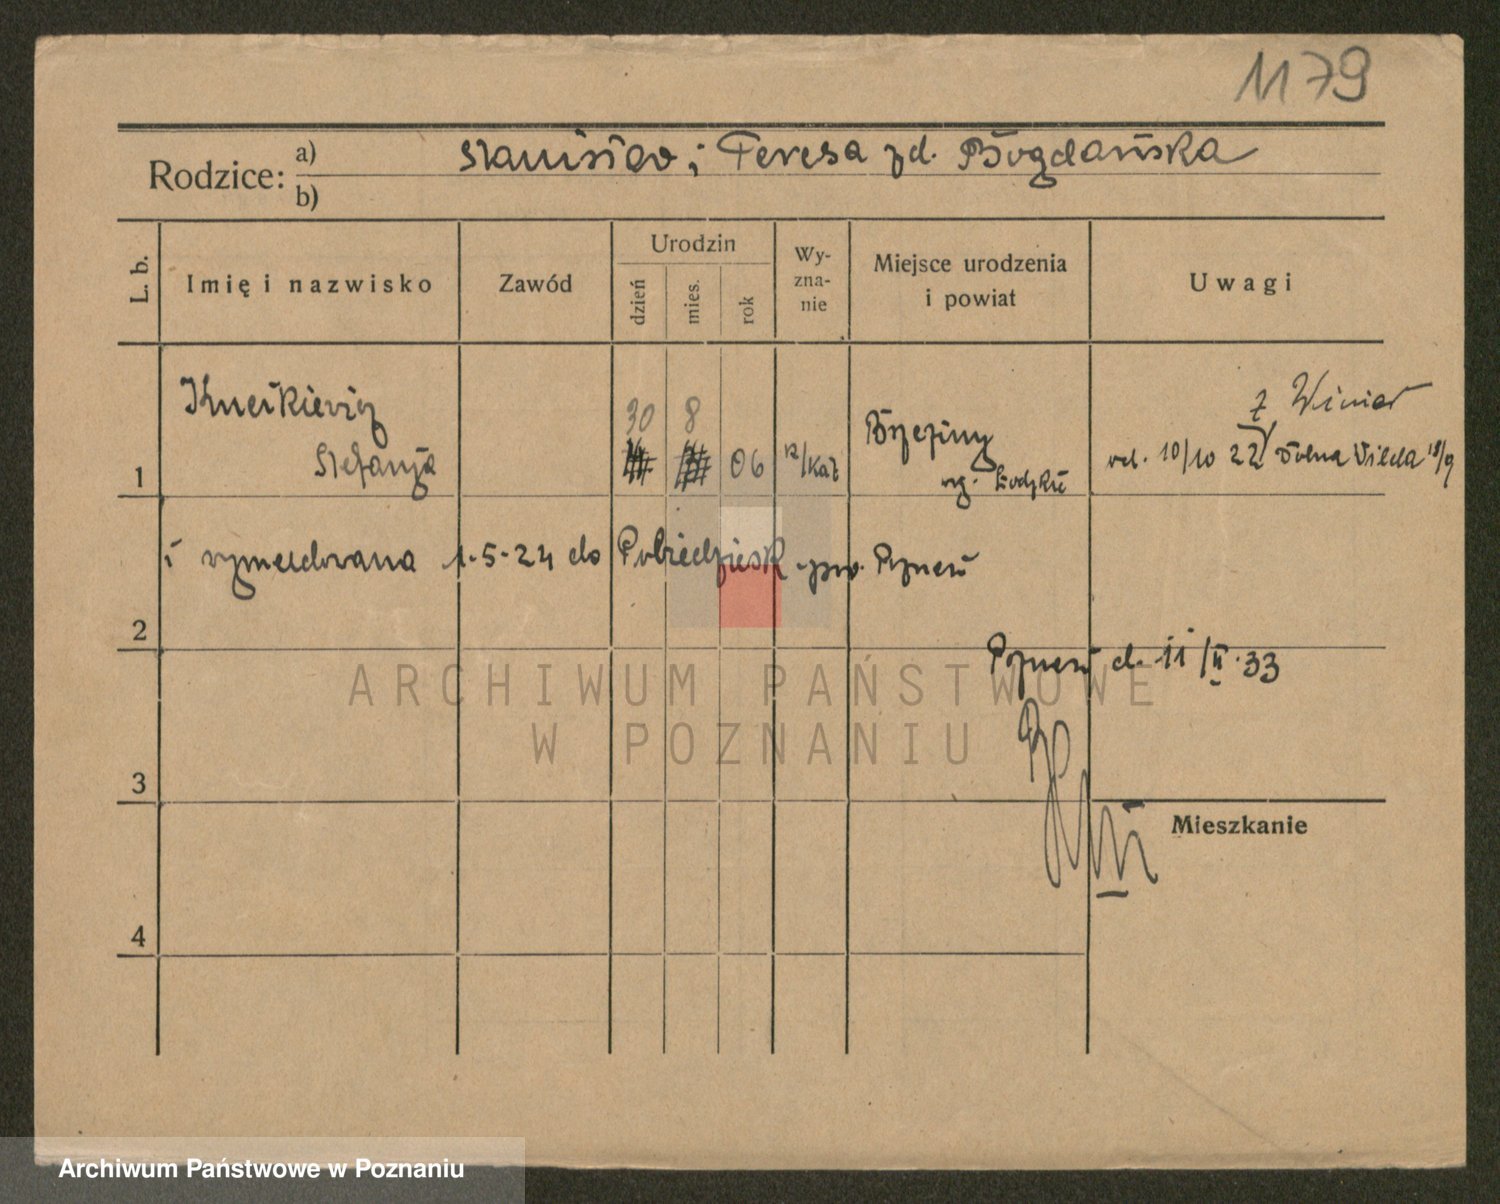 1179
Rodzice: a) Stanisław i Teresa zd. Bogdańska
b)
L. b.
Imię i nazwisko
Zawód
Urodzin
dzień
mies.
rok
Wy-
zna-
nie
Miejsce urodzenia
i powiat
Uwagi
30 8
z Winiar
Brzeziny
Stefanja
06
rz/kat
1
od. 10/10 22 Dolna Wilda 18/9
wymeldowana 1.-5.-24 do Pobiedzisk pow. Poznań
2
Poznań d. 11/II.33
ARCHIWUM PAŃSTWOWE
W POZNANIU
3
Mieszkanie
4
Archiwum Państwowe w Poznaniu